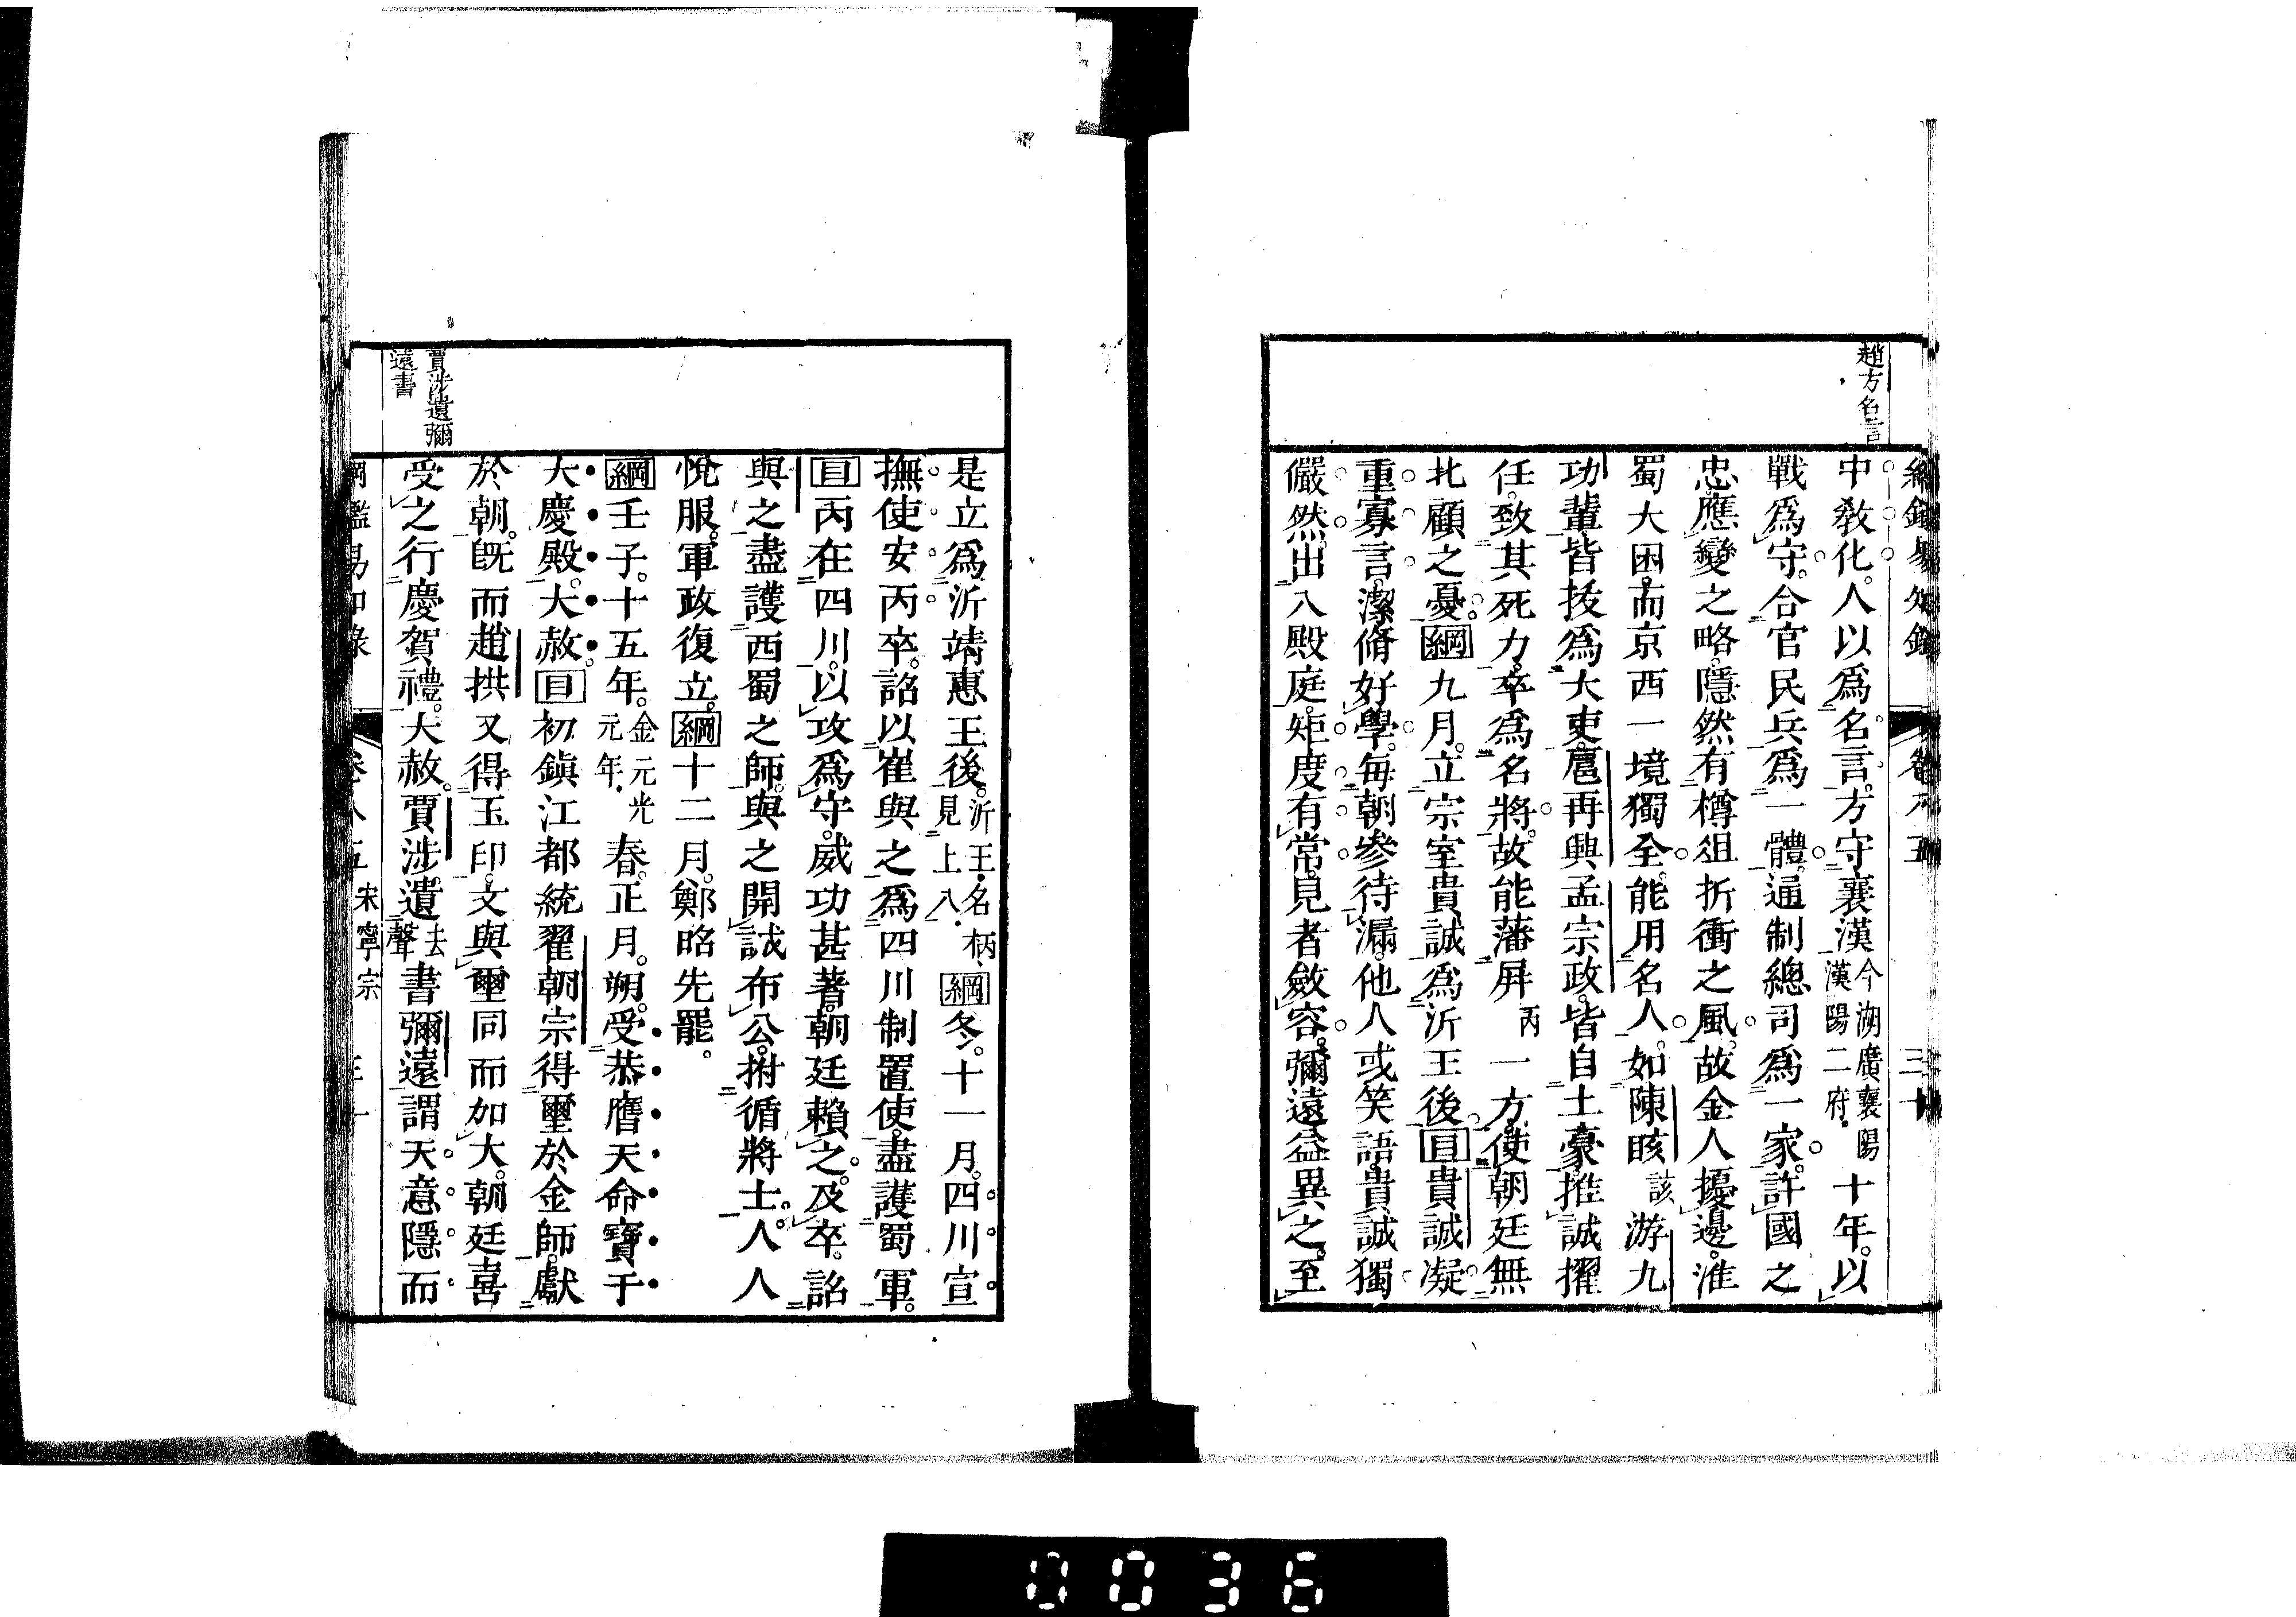 趙方名言
中教化。人以爲名言。方守襄漢今湖廣襄陽漢陽二府。十年。以
戰爲守。合官民兵爲一體。通制總司爲一家。許國之
忠。應變之略。隱然有樽俎折衝之風。故金人擾邊。淮
蜀大困。而京西一境獨全。能用名人。如陳晐該游九
功輩。皆拔爲大吏。扈再興孟宗政。皆自土豪。推誠擢
任。致其死力。卒爲名將。故能藩屏丙一方。使朝廷無
北顧之憂。綱九月。立宗室貴誠爲沂王後。目貴誠凝
重寡言。潔脩好學。每朝參待漏。他人或笑語。貴誠獨
儼然。出入殿庭。矩度有常。見者斂容。彌遠益異之。至
是立爲沂靖惠王後。沂王名柄見上八。綱冬。十一月。四川宣
撫使安丙卒。詔以崔與之爲四川制置使。盡護蜀軍。
目丙在四川。以攻爲守。威功甚著。朝廷賴之。及卒。詔
與之盡護西蜀之師。與之開誠布公。拊循將士。人人
悅服。軍政復立。綱十二月。鄭昭先罷。
綱壬子。十五年。金元光元年。春。正月。朔。受恭膺天命寶于
大慶殿。大赦。目初鎭江都統翟朝宗得璽於金師。獻
於朝。旣而趙拱又得玉印。文與璽同而加大。朝廷喜
受之。行慶賀禮。大赦。賈涉遺去聲書彌遠。謂天意隱而
賈涉遺彌
遠書
宋寧宗
0036